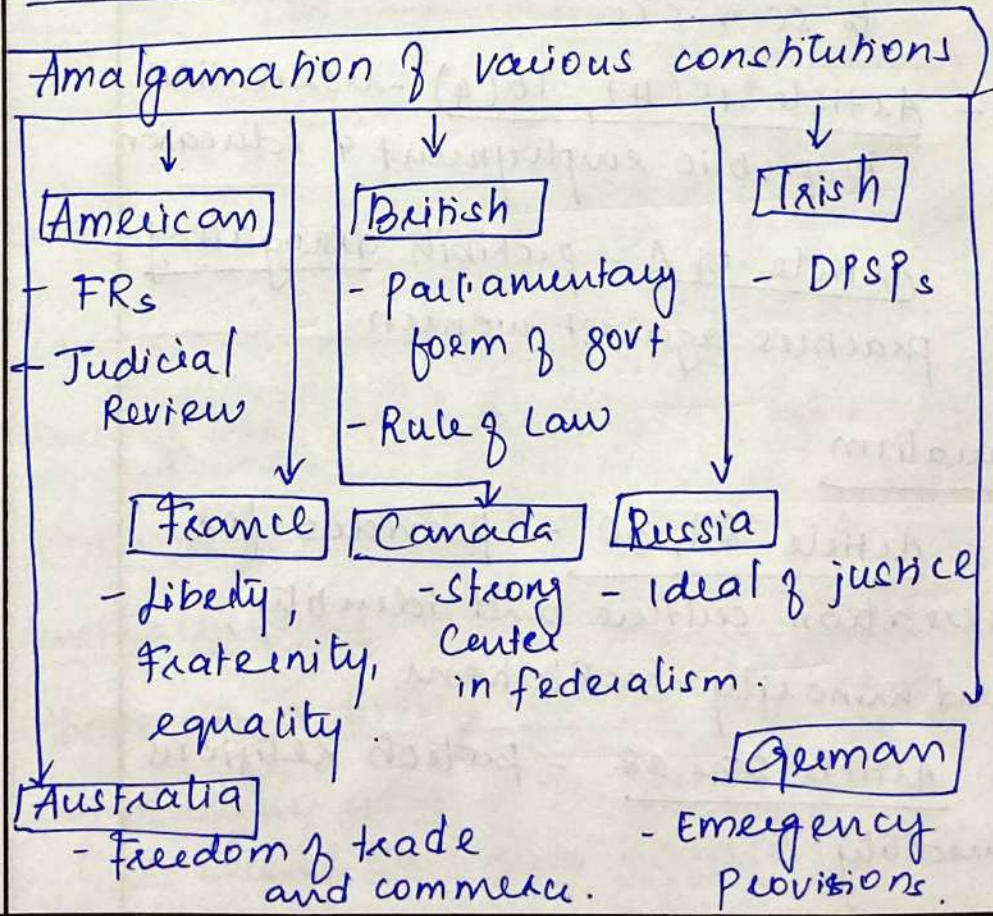 Amalgamation of various constitutions
American
- FRs
- Judicial
Review
British
- Parliamentary
form of govt
- Rule of Law
Irish
- DPSPs
France
- Liberty,
Fraternity,
equality.
Canada
- Strong
Center
in federalism.
Russia
- Ideal of justice
Australia
- Freedom of trade
and commerce.
German
- Emergency
Provisions.